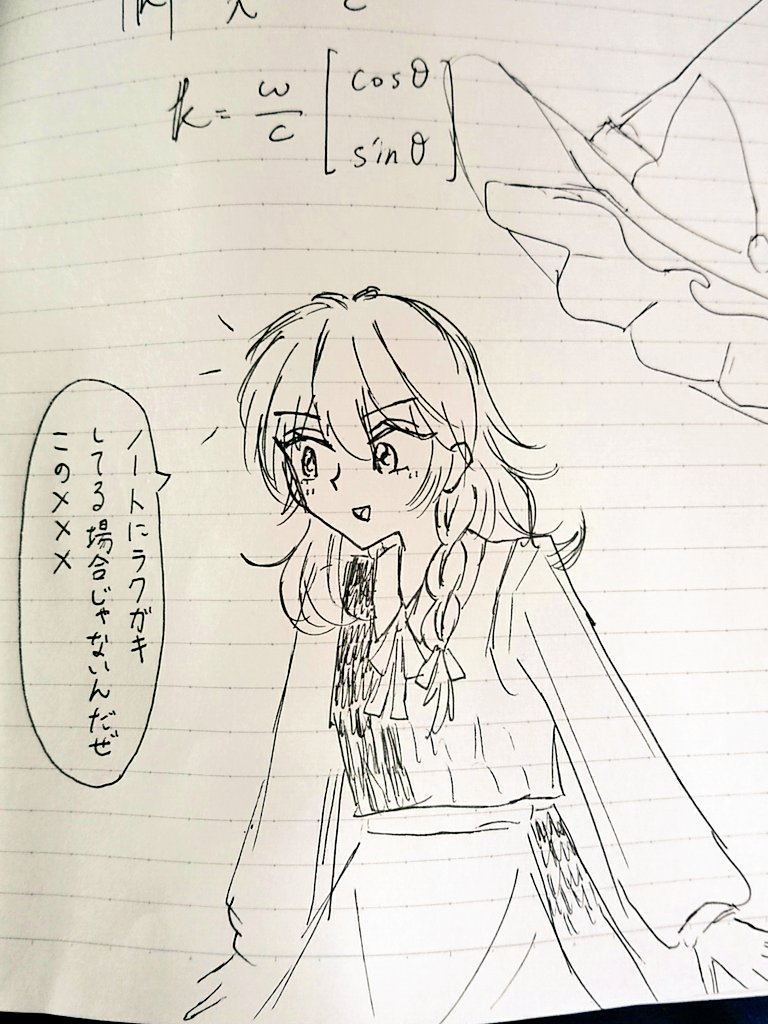 k = ω/c [cosθ
sinθ]
ノートにラクガキ
してる場合じゃないんだぜ
この×××